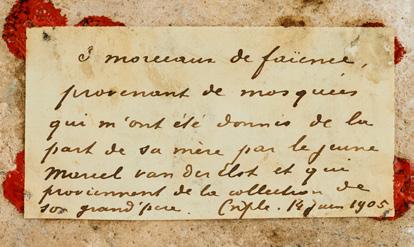 3 morceaux de faïence,
provenant de mosquées
qui m'ont été donnés de la
part de sa mère par le jeune
Marcel van der Elst et qui
proviennent de la collection de
son grand'père. Cnple. 14 juin 1905